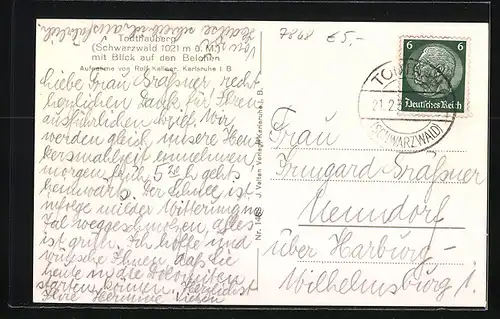 Von Hause schreibe ich ausführlich.
Todtnauberg
(Schwarzwald 1021 m ü. M.)
mit Blick auf den Belchen
Aufnahme von Rolf Kellner, Karlsruhe i. B.
Liebe Frau Graßner, recht
herzlichen Dank für Ihren
ausführlichen Brief. Wir
werden gleich unsere Hen-
kersmahlzeit einnehmen
morgen früh 5 h gehts
heimwärts. Der Schnee ist
infolge milder Witterung im
Tal weggeschmolzen, alles
ist grün. Ich hoffe und
wünsche Ihnen, daß Sie
heute in die Dolomiten
starten können. Herzlichst
Ihre Hermine
Nr. J. Velten Verlag Karlsruhe i. B.
7848 €5,-
6 6
Deutsches Reich
21.2.
(SCHWARZWALD)
Frau
Irmgard Graßner
Neundorf
über Harburg-
Wilhelmsburg 1.